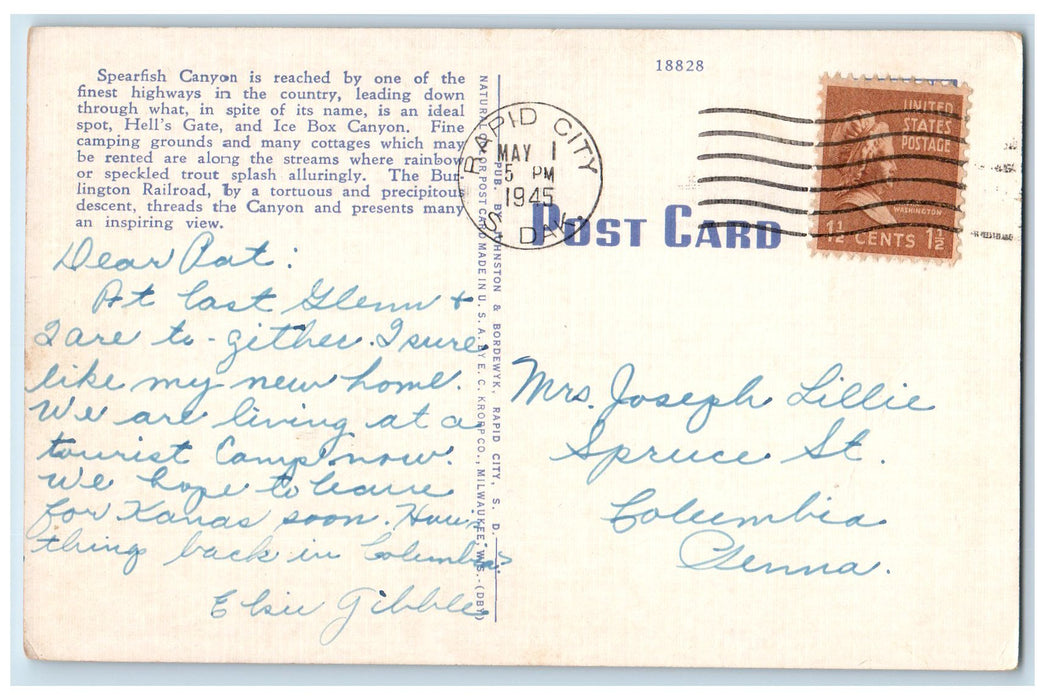 18828
Spearfish Canyon is reached by one of the
finest highways in the country, leading down
through what, in spite of its name, is an ideal
spot, Hell's Gate, and Ice Box Canyon. Fine
camping grounds and many cottages which may
be rented are along the streams where rainbow
or speckled trout splash alluringly. The Bur-
lington Railroad, by a tortuous and precipitous
descent, threads the Canyon and presents many
an inspiring view.
Dear Pat:
At last Glenn &
I are to-gither. I sure
like my new home.
We are living at a
tourist Camp now.
We hope to leave
for Kanas soon. How
thing back in Columbia?
Elsie Gibble
NATURAL COLOR POST CARD MADE IN U. S. A. BY E. C. KROPP CO., MILWAUKEE, WIS.-(DBY)
PUB. BY JOHNSTON & BORDEWYK, RAPID CITY, S. D.
RAPID CITY
MAY 1
5 PM
1945
S. DAK.
POST CARD
UNITED
STATES
POSTAGE
WASHINGTON
1½ CENTS 1½
Mrs. Joseph Lillie
Spruce St.
Columbia
Penna.